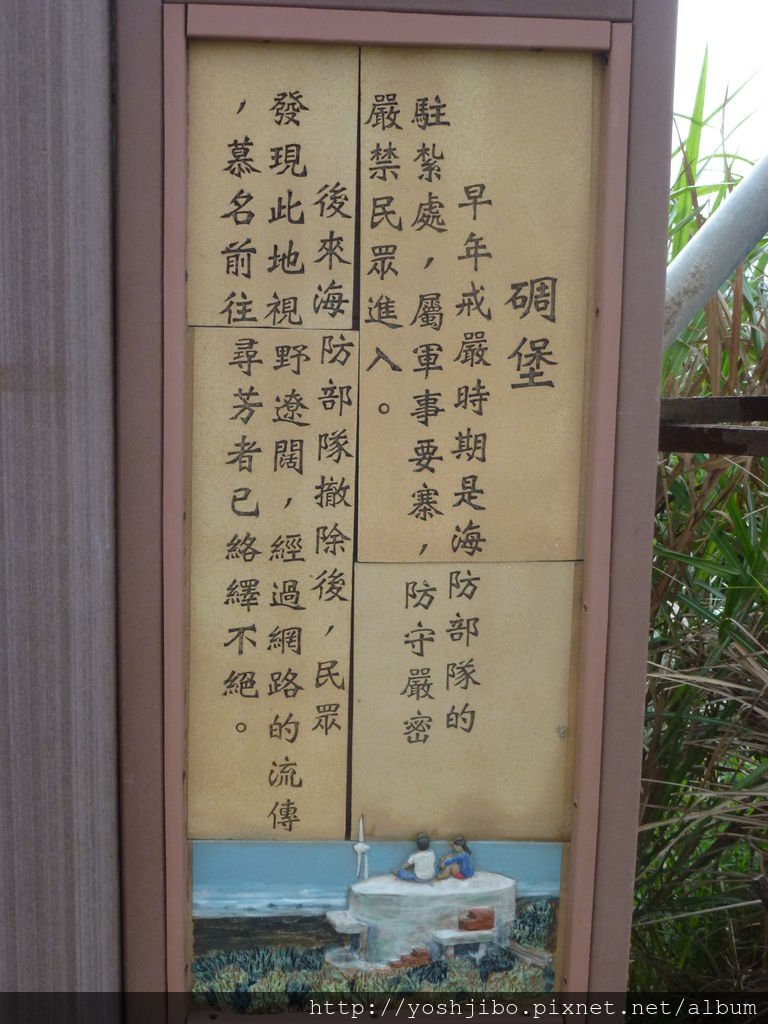 碉堡
早年戒嚴時期是海防部隊的
駐紮處，屬軍事要寨，防守嚴密
嚴禁民眾進入。
後來海防部隊撤除後，民眾
發現此地視野遼闊，經過網路的流傳
，慕名前往尋芳者已絡繹不絕。
http://yoshjibo.pixnet.net/album